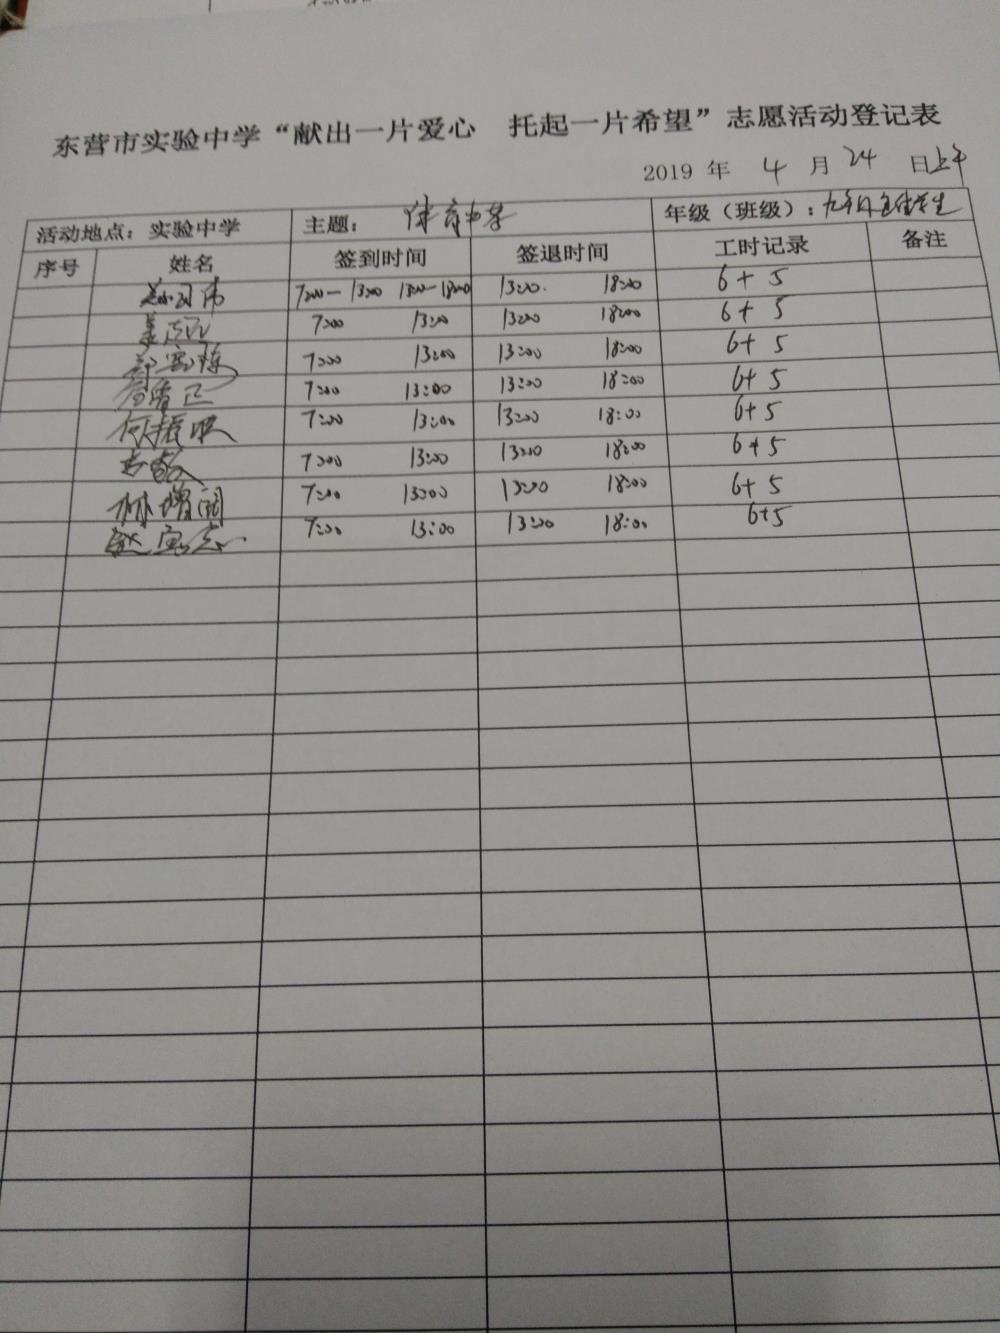 东营市实验中学“献出一片爱心 托起一片希望”志愿活动登记表
2019 年 4 月 24 日上午
活动地点：实验中学 主题：体育中考 年级（班级）：
序号 姓名 签到时间 签退时间 工时记录 备注
7:00-13:00 13:00-18:00 13:00 18:00 6+5
7:00 13:00 13:00 18:00 6+5
7:00 13:00 13:00 18:00 6+5
7:00 13:00 13:00 18:00 6+5
何振 7:00 13:00 13:00 18:00 6+5
7:00 13:00 13:00 18:00 6+5
林增 7:00 13:00 13:00 18:00 6+5
赵 7:00 13:00 13:00 18:00 6+5